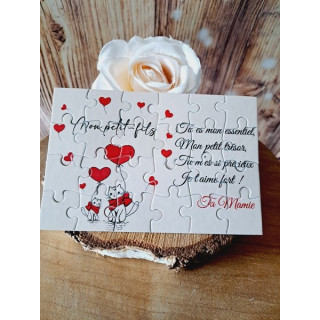 Mon petit-fils
Tu es mon essentiel,
Mon petit trésor,
Tu m'es si précieux
Je t'aime fort !
Ta Mamie